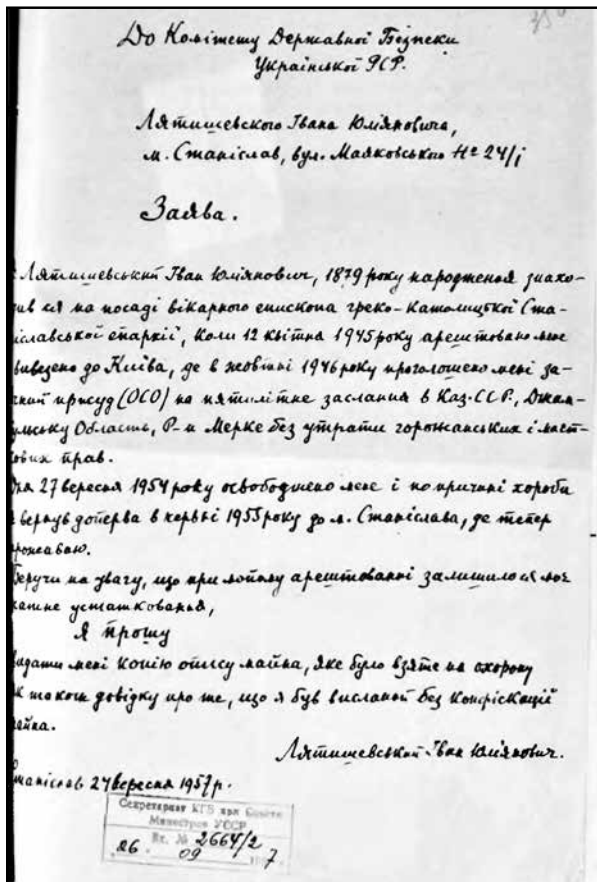 До Комітету Державної Безпеки
Української РСР.
Лятишевского Івана Юліяновича,
м. Станіслав, вул. Маяковського № 24/
Заява.
Лятишевський Іван Юліянович, 1879 року народження знахо-
див ся на посаді вікарного епископа греко-Католицкої Ста-
іславської епархії, коли 12 квітна 1945 року арештовано мене
вивезено до Київа, де в жовтні 1946 року проголошено мені за-
чний присуд (ОСО) на пятилітне заслання в Каз. ССР., Джам-
ульську Область, Р-н Мерке без утрати горожанських і маєт-
ових прав.
Дня 27 вересня 1954 року освободжено мене і по причині хороби
вернув доперва в червні 1955 року до м. Станіслава, де тепер
рожаваю.
Беручи на увагу, що при мойому арештованні залишилося моє
хатне устаткованья,
Я прошу
видати мені копію опису майна, яке було взяте на охорону
також довідку про те, що я був висланий без конфіскації
майна.
Лятишевський Іван Юліянович.
таніслав 24 вересня 1957 р.
Секретариат КГБ при Совете
Министров УССР
Вх. № 2664/2
26. 09 7